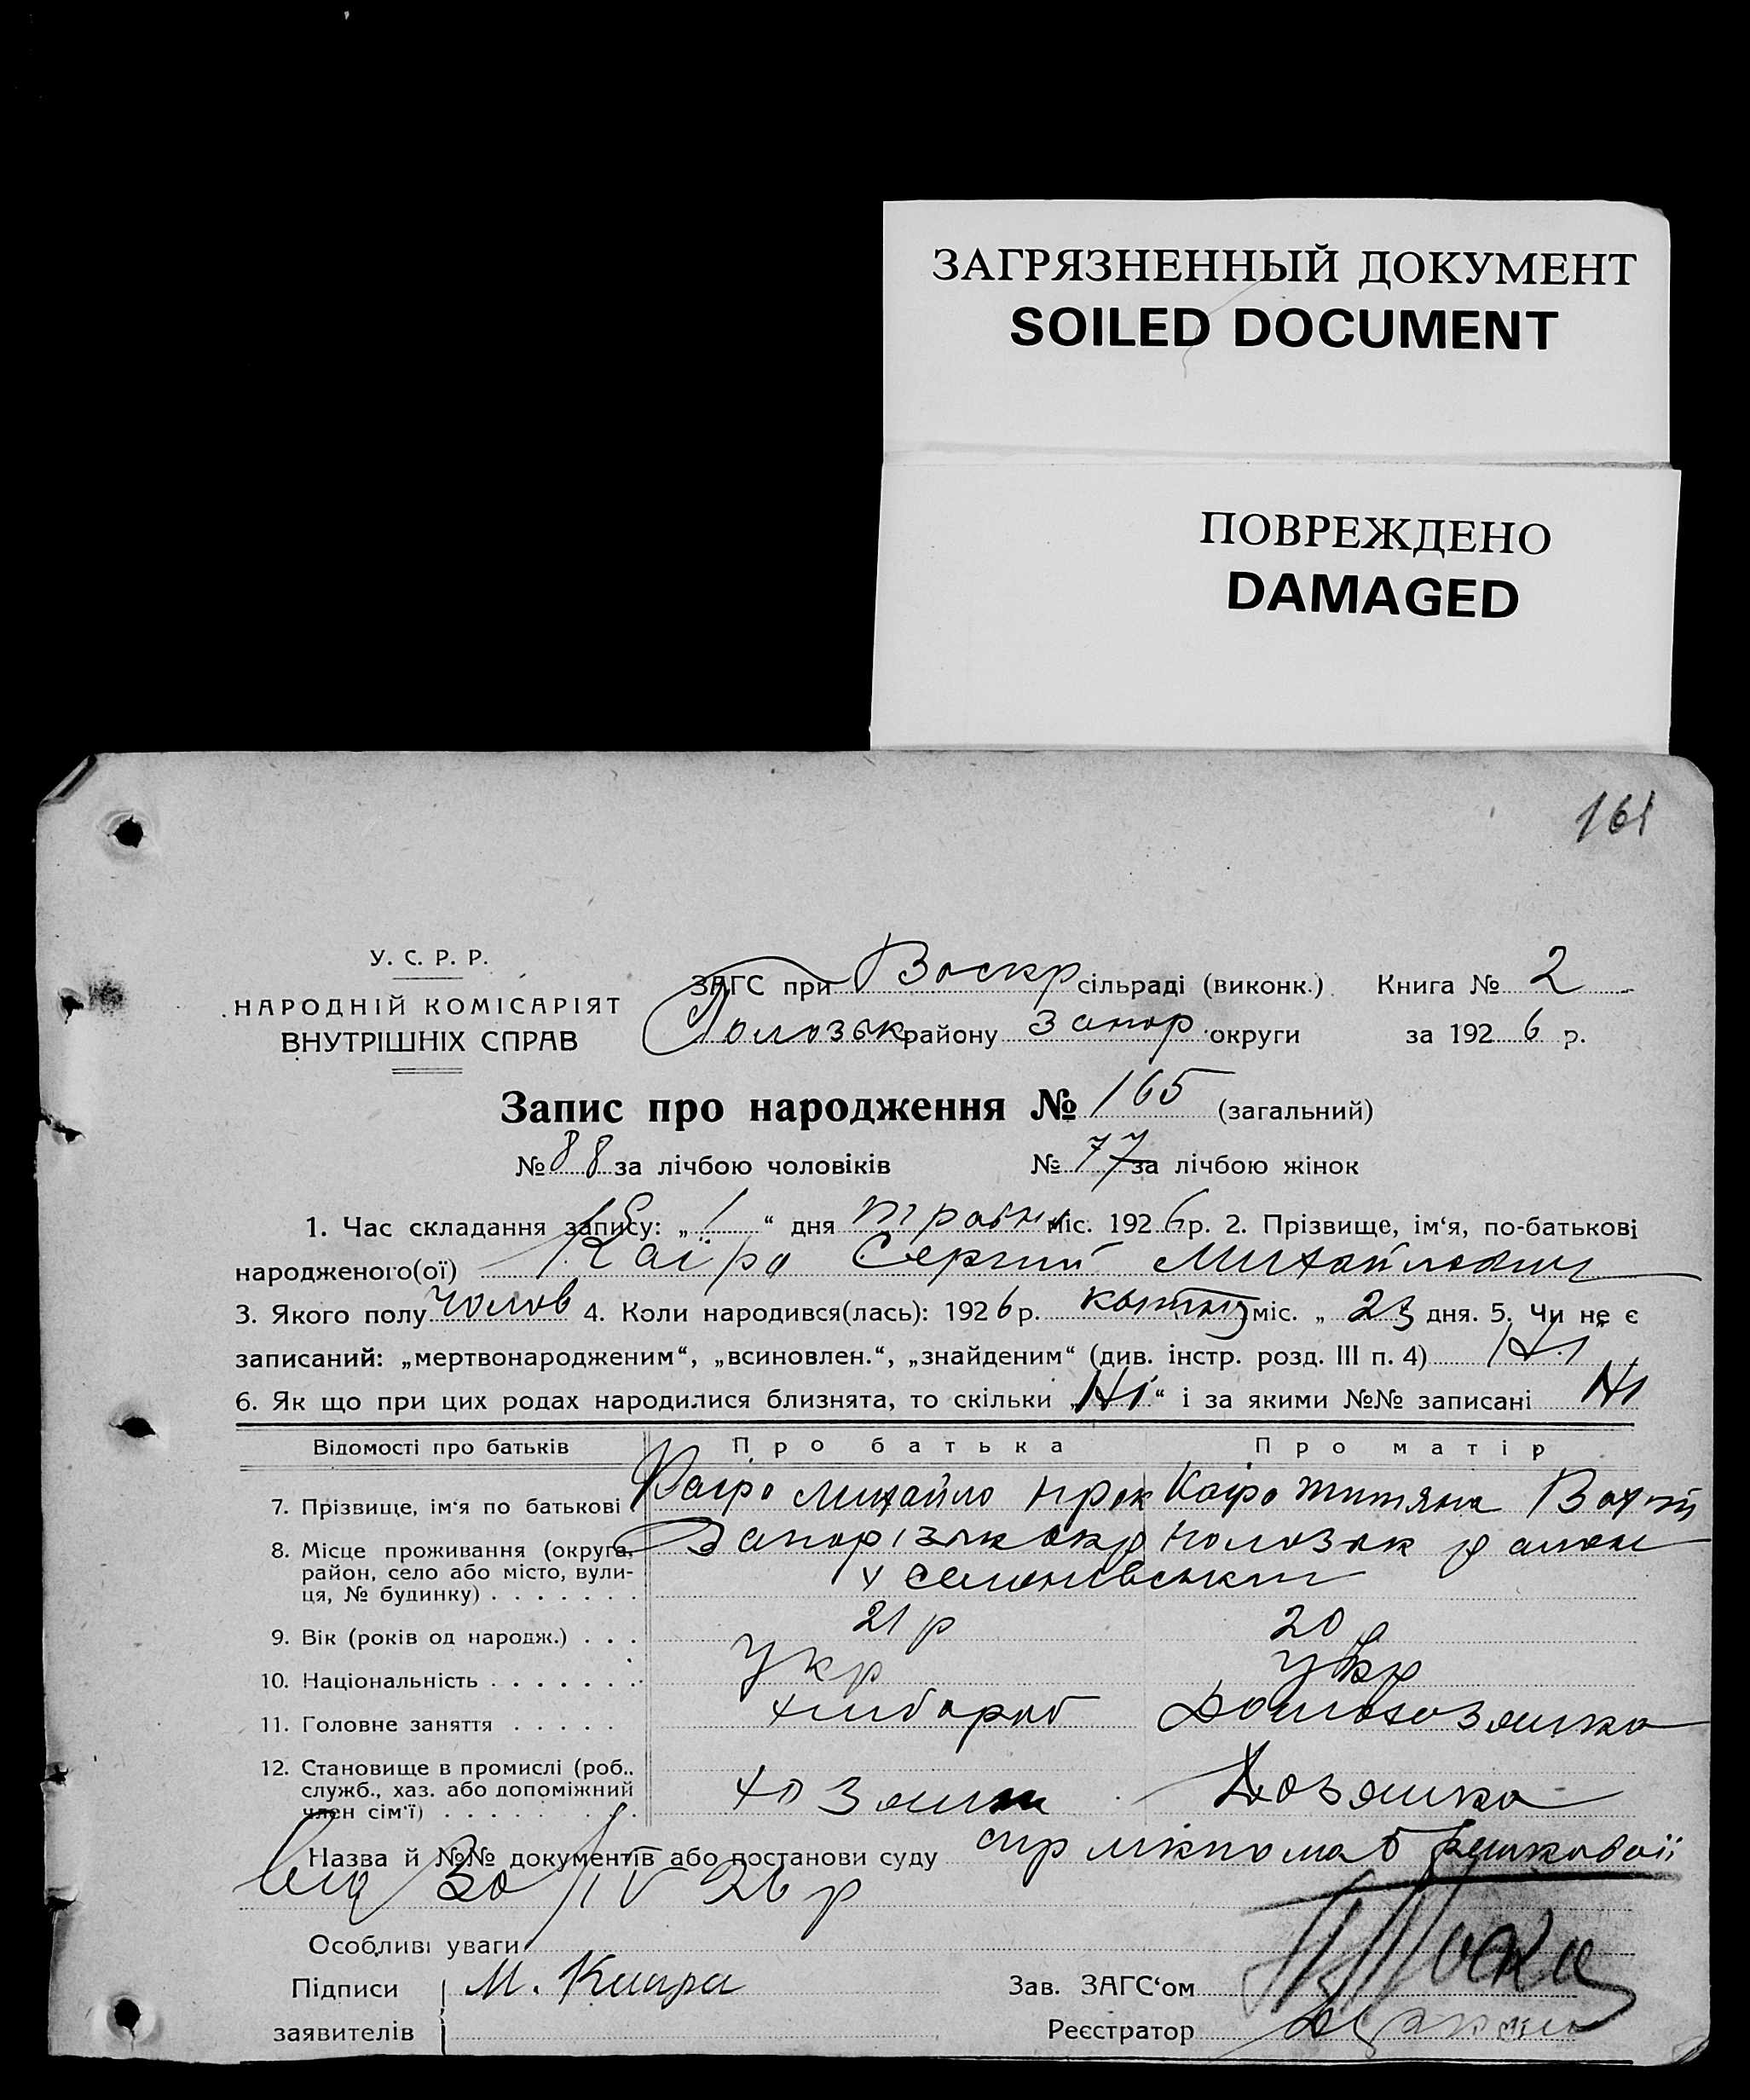 ЗАГРЯЗНЕННЫЙ ДОКУМЕНТ
SOILED DOCUMENT
ПОВРЕЖДЕНО
DAMAGED
161
У. С. Р. Р.
НАРОДНІЙ КОМІСАРІЯТ
ВНУТРІШНІХ СПРАВ
ЗАГС при Воскр сільраді (виконк.) Книга № 2
району Запор. округи за 1926 р.
Запис про народження № 165 (загальний)
№ 88 за лічбою чоловіків № 77 за лічбою жінок
1. Час складання запису: „1“ дня травня міс. 1926 р. 2. Прізвище, ім‘я, по-батькові
народженого(ої) Каїра Сергий Михайлович
3. Якого полу чолов 4. Коли народився(лась): 1926 р. міс. „ 23 дня. 5. Чи не є
записаний: „мертвонародженим“, „всиновлен.“, „знайденим“ (див. інстр. розд. III п. 4) Ні
6. Як що при цих родах народилися близнята, то скільки „Ні“ і за якими №№ записані Ні
Відомості про батьків Про батька Про матір
7. Прізвище, ім‘я по батькові Михайло
8. Місце проживання (округа,
район, село або місто, вули-
ця, № будинку) . . . . . . .
9. Вік (років од народж.) . . . 21 р 20 р
10. Національність . . . . . . . Укр Укр
11. Головне заняття . . . . . хлибороб
12. Становище в промислі (роб..
служб., хаз. або допоміжний
член сім‘ї) . . . . . . . . .
Назва й №№ документів або постанови суду
30/IV 26 р
Особливі уваги
Підписи М. Каира Зав. ЗАГС‘ом
заявителів Реєстратор